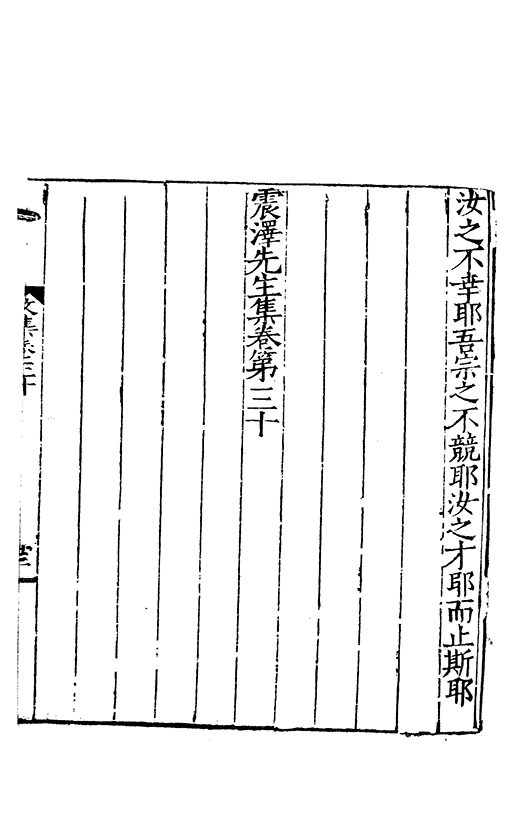 汝之不幸耶吾宗之不競耶汝之才耶而止斯耶
震澤先生集卷第三十
文集卷三十